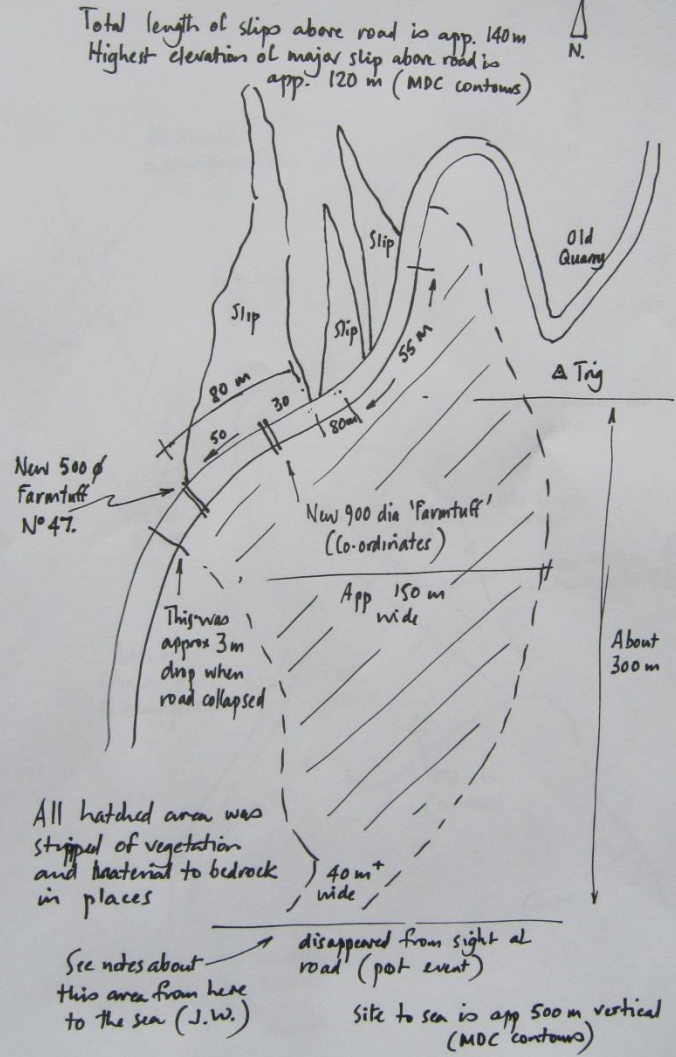 Total length of slips above road is app. 140m
Highest elevation of major slip above road is
app. 120 m (MDC contours)
N.
Slip
Old
Quarry
Slip
Slip
55 m
Trig
80 m
30
80m
50
New 500 ϕ
Farmtuff
Nº 47.
New 900 dia 'Farmtuff'
(Co-ordinates)
App 150 m
wide
This was
approx 3m
drop when
road collapsed
About
300 m
All hatched area was
stripped of vegetation
and material to bedrock
in places
40 m+
wide
disappeared from sight at
road (pot event)
See notes about
this area from here
to the sea (J.W.)
Site to sea is app 500 m vertical
(MDC contours)